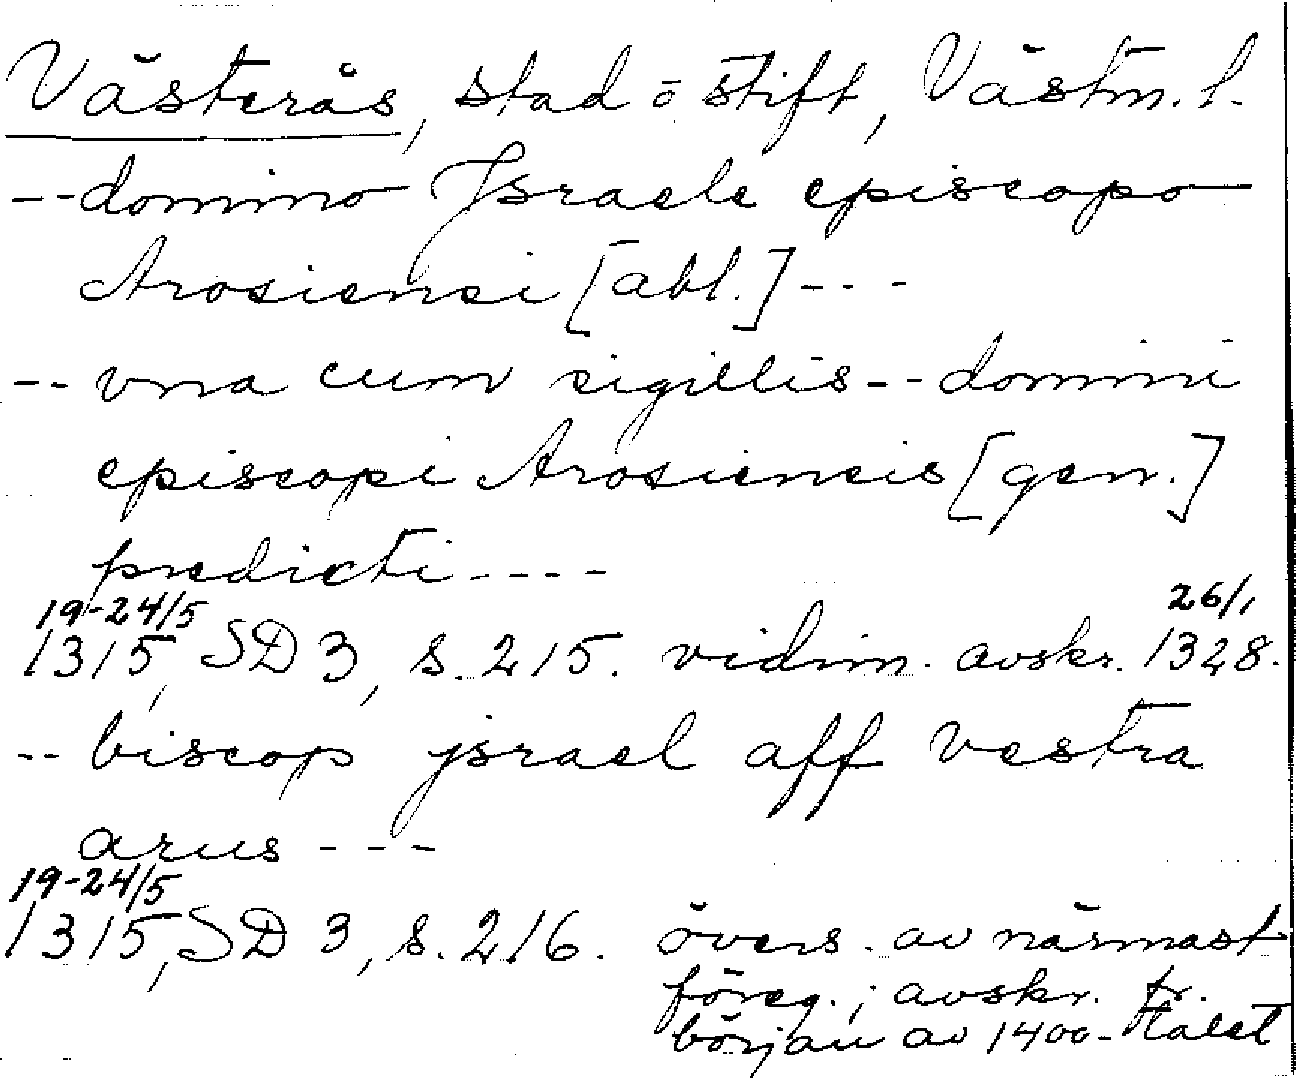 Västerås, stad o stift, Västm. l.
-- domino Jsraele episcopo
Arosiensi [abl.] ---
-- vna cum sigillis -- domini
episcopi Arosiensis [gen.]
predicti ----
19-24/5 26/1
1315, SD 3, s. 215. vidim. avskr. 1328.
-- biscop jsrael aff vestra
arus ---
19-24/5
1315, SD 3, s. 216. övers. av närmast
föreg.; avskr. fr.
början av 1400-talet